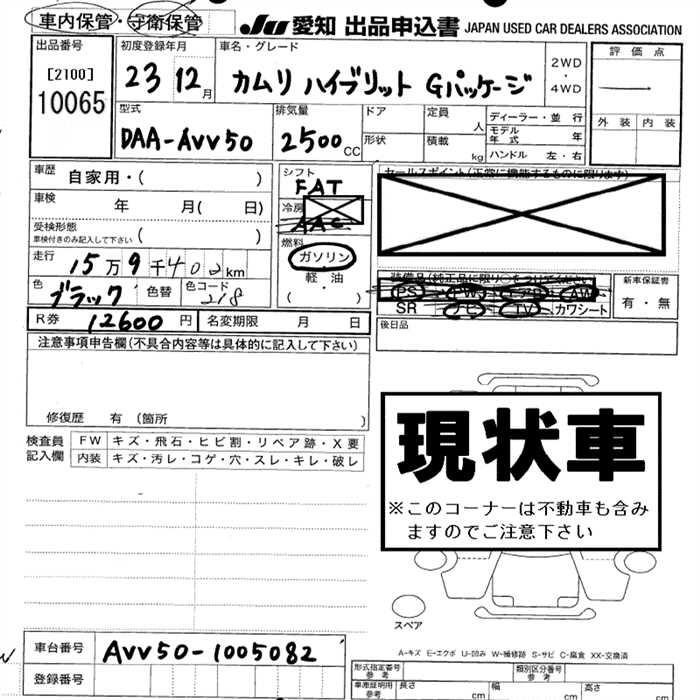 車内保管・守衛保管
JU 愛知 出品申込書 JAPAN USED CAR DEALERS ASSOCIATION
出品番号
[2100]
10065
初度登録年月
23 12月
車名・グレード
カムリ ハイブリット Gパッケージ
2WD
・
4WD
評価点
外装 内装
型式
DAA-AVV50
排気量
2500CC
ドア
形状
定員 人
積載 kg
ディーラー・並行
モデル年式 年
ハンドル 左・右
車歴 自家用・( )
車検 年 月( 日)
受検形態
車検付きのみ記入して下さい ( )
走行 15万9千402km
色 ブラック 色替 色コード 218
R券 12600円 名変期限 月 日
シフト
FAT
冷房
AAC
燃料
ガソリン
・
軽・油
( )
セールスポイント(正常に機能するものに限ります)
装備品(純正品に限り○をつけてください)
PS PW AW
SR ナビ TV カワシート
新車保証書
有・無
後日品
注意事項申告欄(不具合内容等は具体的に記入して下さい)
修復歴 有 (箇所 )
検査員記入欄
FW キズ・飛石・ヒビ割・リペア跡・X要
内装 キズ・汚レ・コゲ・穴・スレ・キレ・破レ
現状車
※このコーナーは不動車も含み
ますのでご注意下さい
スペア
A-キズ E-エクボ U-凹み W-補修跡 S-サビ C-腐食 XX-交換済
車台番号 AVV50-1005082
登録番号
形式指定番号 参考
類別区分番号 参考
車庫証明用 参考 長さ cm 幅 cm 高さ cm